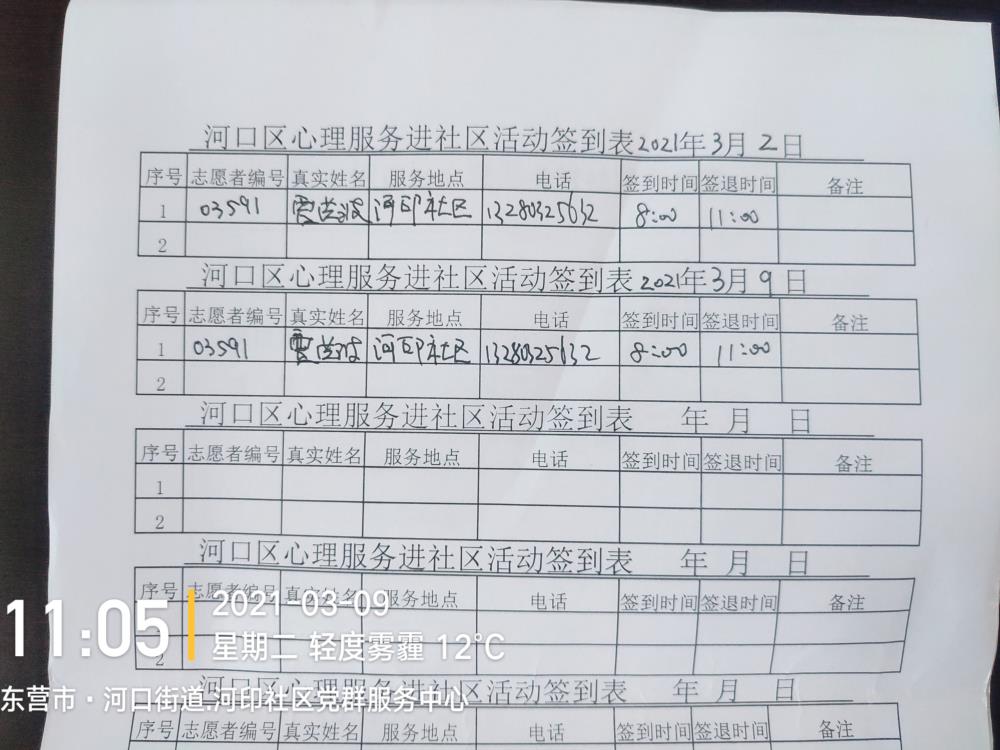 河口区心理服务进社区活动签到表2021年3月2日
序号 志愿者编号 真实姓名 服务地点 电话 签到时间 签退时间 备注
1 03591 河印社区 13280325632 8:00 11:00
2
河口区心理服务进社区活动签到表2021年3月9日
序号 志愿者编号 真实姓名 服务地点 电话 签到时间 签退时间 备注
1 03591 河印社区 13280325632 8:00 11:00
2
河口区心理服务进社区活动签到表 年 月 日
序号 志愿者编号 真实姓名 服务地点 电话 签到时间 签退时间 备注
1
2
河口区心理服务进社区活动签到表 年 月 日
序号 志愿者编号 真实姓名 服务地点 电话 签到时间 签退时间 备注
2
11:05
2021-03-09
星期二 轻度雾霾 12℃
东营市·河口街道.河印社区党群服务中心
河口区心理服务进社区活动签到表 年 月 日
序号 志愿者编号 真实姓名 服务地点 电话 签到时间 签退时间 备注